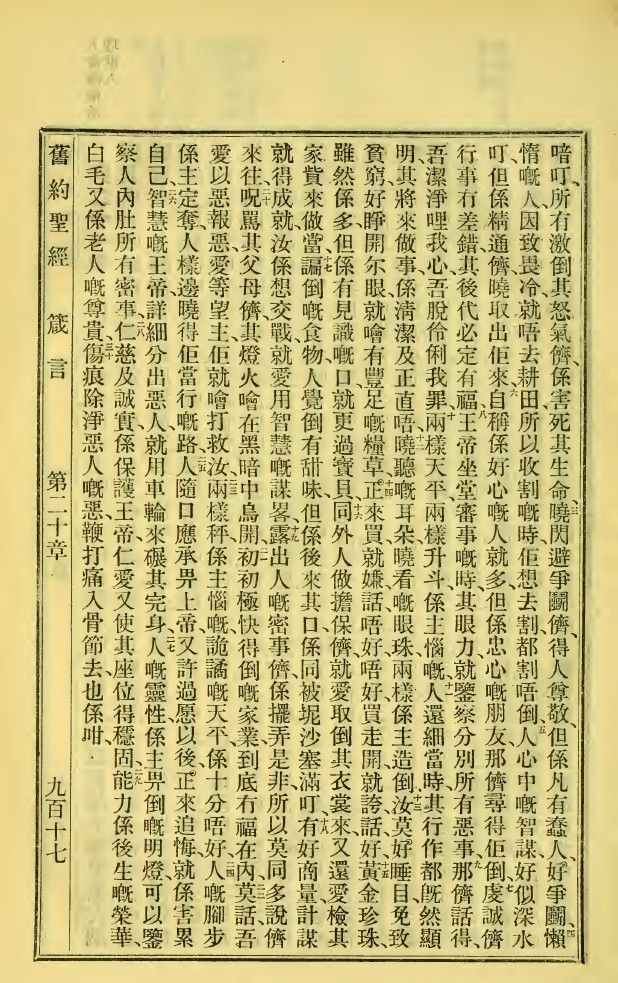 喑叮、所有激倒其怒氣儕、係害死其生命、三曉閃避爭鬭儕、得人尊敬、但係凡有蠢人、好爭鬭、四懶
惰嘅人、因致畏冷、就唔去耕田、所以收割嘅時、佢想去割都割唔倒、五人心中嘅智謀、好似深水
叮、但係精通儕曉取出佢來、六自稱係好心嘅人就多、但係忠心嘅朋友、那儕尋得佢倒、七虔誠儕
行事冇差錯、其後代必定有福、八王帝坐堂審事嘅時、其眼力就鑒察分別所有惡事、九那儕話得、
吾潔淨哩我心、吾脫伶俐我罪、十兩樣天平、兩樣升斗、係主惱嘅、十一人還細當時、其行作都旣然顯
明其將來做事、係淸潔及正直唔、十二曉聽嘅耳朵、曉看嘅眼珠、兩樣係主造倒、十三汝莫好睡目、免致
貧窮、好睜開尔眼、就噲有豐足嘅糧草、十四正來買就嫌話唔好唔好、買走開就誇話好、十五黃金珍珠、
雖然係多、但係有見識嘅口、就更過寶貝、十六同外人做擔保儕、就愛取倒其衣裳來、又還愛檢其
家貲來做當、十七謟倒嘅食物、人覺倒有甜味、但係後來其口係同被坭沙塞滿叮、十八有好商量計謀
就得成就、汝係想交戰、就愛用智慧嘅謀畧、十九露出人嘅密事儕、係擺弄是非、所以莫同多說儕
來往、二十呪罵其父母儕、其燈火噲在黑暗中烏開、二一初初極快得倒嘅家業、到底冇福在內、二二莫話、吾
愛以惡報惡、愛等望主、佢就噲打救汝、二三兩樣秤、係主惱嘅、詭譎嘅天平、係十分唔好、二四人嘅腳步
係主定奪、人樣邊曉得佢當行嘅路、二五人隨口應承畀上帝、又許過愿以後、正來追悔、就係害累
自己、二六智慧嘅王帝、詳細分出惡人、就用車輪來碾其完身、二七人嘅靈性、係主畀倒嘅明燈、可以鑒
察人內肚所有密事、二八仁慈及誠實、係保護王帝、仁愛又使其座位得穩固、二九能力係後生嘅榮華、
白毛又係老人嘅尊貴、三十傷痕除淨惡人嘅惡、鞭打痛入骨節去也係咁、
舊約聖經　箴言　第二十章　九百十七